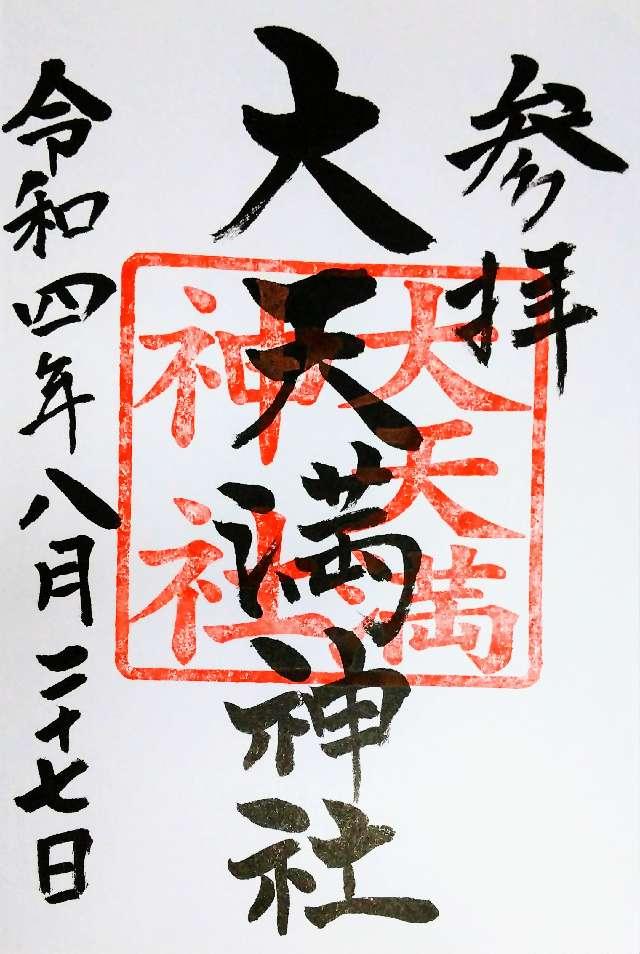 参拝
大天満神社
大天満
神社
令和四年八月二十七日